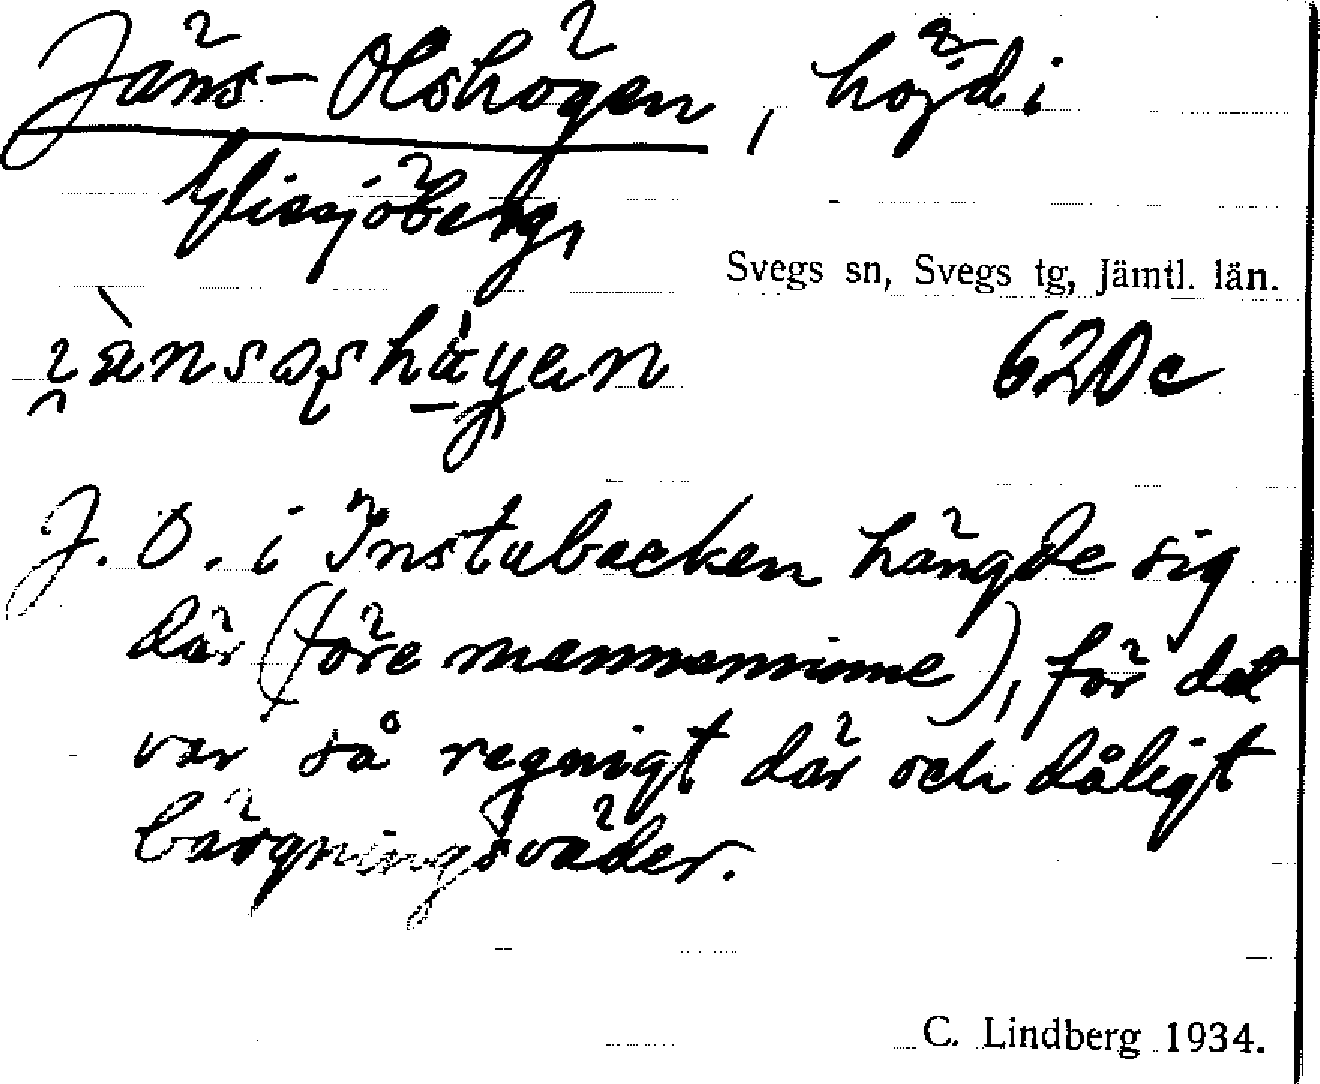 Jäns-Olshögen, höjd i
Glissjöberg,
Svegs sn, Svegs tg, Jämtl. län.
620 c
J. O. i Instubacken hängde sig
där (före mannaminne), för det
var så regnigt där och dåligt
bärgningsväder.
C. Lindberg 1934.